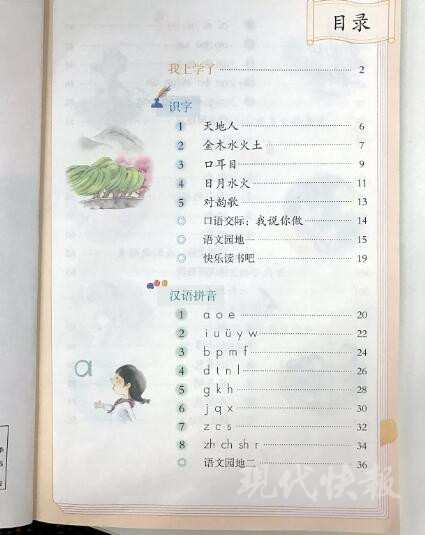 目录
我上学了 2
识字
1 天地人 6
2 金木水火土 7
3 口耳目 9
4 日月水火 11
5 对韵歌 13
◎ 口语交际：我说你做 14
◎ 语文园地一 15
◎ 快乐读书吧 19
汉语拼音
1 ɑ o e 20
2 i u ü y w 22
3 b p m f 24
4 d t n l 26
5 ɡ k h 28
6 j q x 30
7 z c s 32
8 zh ch sh r 34
◎ 语文园地二 36
ɑ
现代快报